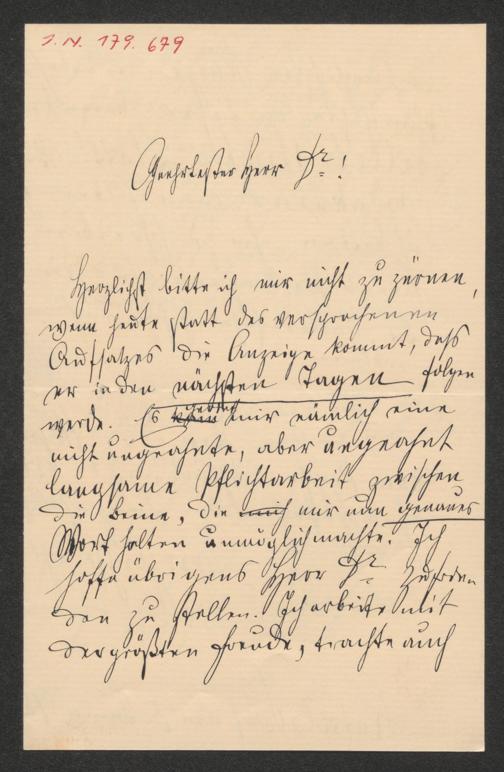 I. N. 179.679
Geehrtester Herr Dr!
Herzlichst bitte ich mir nicht zu zürnen,
wenn heute statt des versprochenen
Aufsatzes die Anzeige kommt, daß
er in den nächsten Tagen folgen
werde. Es kam mir nämlich eine
nicht ungeahnte, aber ungeahnt
langsame Pflichtarbeit zwischen
die Beine, die mich mir nun genaues
Wort halten unmöglich machte. Ich
hoffe übrigens Herr Dr zufrieden
zu stellen. Ich arbeite mit
der größten Freude, trachte auch